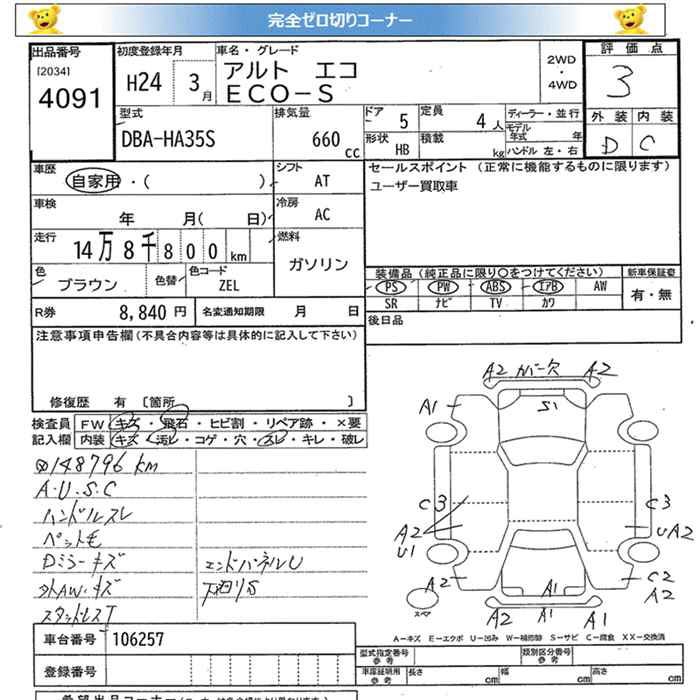 完全ゼロ切りコーナー
出品番号 初度登録年月 車名・グレード 2WD・4WD 評価点
[2034] 4091 H24 3月 アルト エコ ECO-S 3
型式 排気量 ドア 5 定員 4人 ディーラー・並行 外装 内装
DBA-HA35S 660cc 形状 HB 積載 kg モデル年式 年 D C
ハンドル 左・右
車歴 自家用・( ) シフト AT セールスポイント (正常に機能するものに限ります)
ユーザー買取車
車検 年 月( 日) 冷房 AC
走行 14万8千800km 燃料 ガソリン
装備品(純正品に限り〇をつけてください) 新車保証書
色 ブラウン 色替 色コード ZEL PS PW ABS エアB AW 有・無
SR ナビ TV カワ
R券 8,840円 名変通知期限 月 日 後日品
注意事項申告欄(不具合内容等は具体的に記入して下さい)
修復歴 有 [箇所 ]
検査員記入欄 FW キズ・飛石・ヒビ割・リペア跡・×要
内装 キズ・汚レ・コゲ・穴・スレ・キレ・破レ
148796 km
A・U・S・C
ハンドルスレ
ペット毛
Dミラーキズ エンドパネルU
外AW・キズ 下廻りS
スタッドレスT
A2 カバー欠 A2
A1 S1
C3 C3
A2 U1 UA2
A2 C2 A2
A1
スペア A2 A1 A1
A-キズ E-エクボ U-凹み W-補修跡 S-サビ C-腐食 XX-交換済
車台番号 106257
型式指定番号 参考 類別区分番号 参考
登録番号
車庫証明用 参考 長さ cm 幅 cm 高さ cm